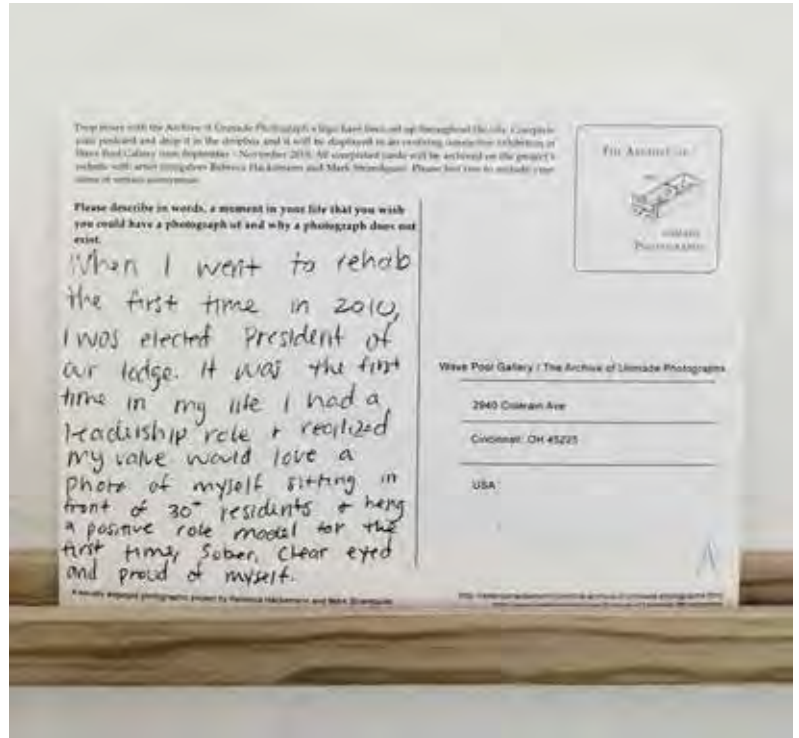 Drop boxes with the Archive of Unmade Photograph's logo have been set up throughout the city. Complete
your postcard and drop it in the dropbox and it will be displayed in an evolving interactive exhibition at
Wave Pool Gallery from September - November 2018. All completed cards will be archived on the project's
website with artist Rebecca Hackemann and Mark Strandquist. Please feel free to include your
name or remain anonymous.
Please describe in words, a moment in your life that you wish
you could have a photograph of and why a photograph does not
exist.
When I went to rehab
the first time in 2010,
I was elected President of
our lodge. It was the first
time in my life I had a
leadership role + realized
my value. would love a
photo of myself sitting in
front of 30+ residents + being
a positive role model for the
first time, Sober, clear eyed
and proud of myself.
A socially engaged photographic project by Rebecca Hackemann and Mark Strandquist
THE ARCHIVE OF
UNMADE
PHOTOGRAPHS
Wave Pool Gallery / The Archive of Unmade Photographs
2940 Colerain Ave
Cincinnati, OH 45225
USA